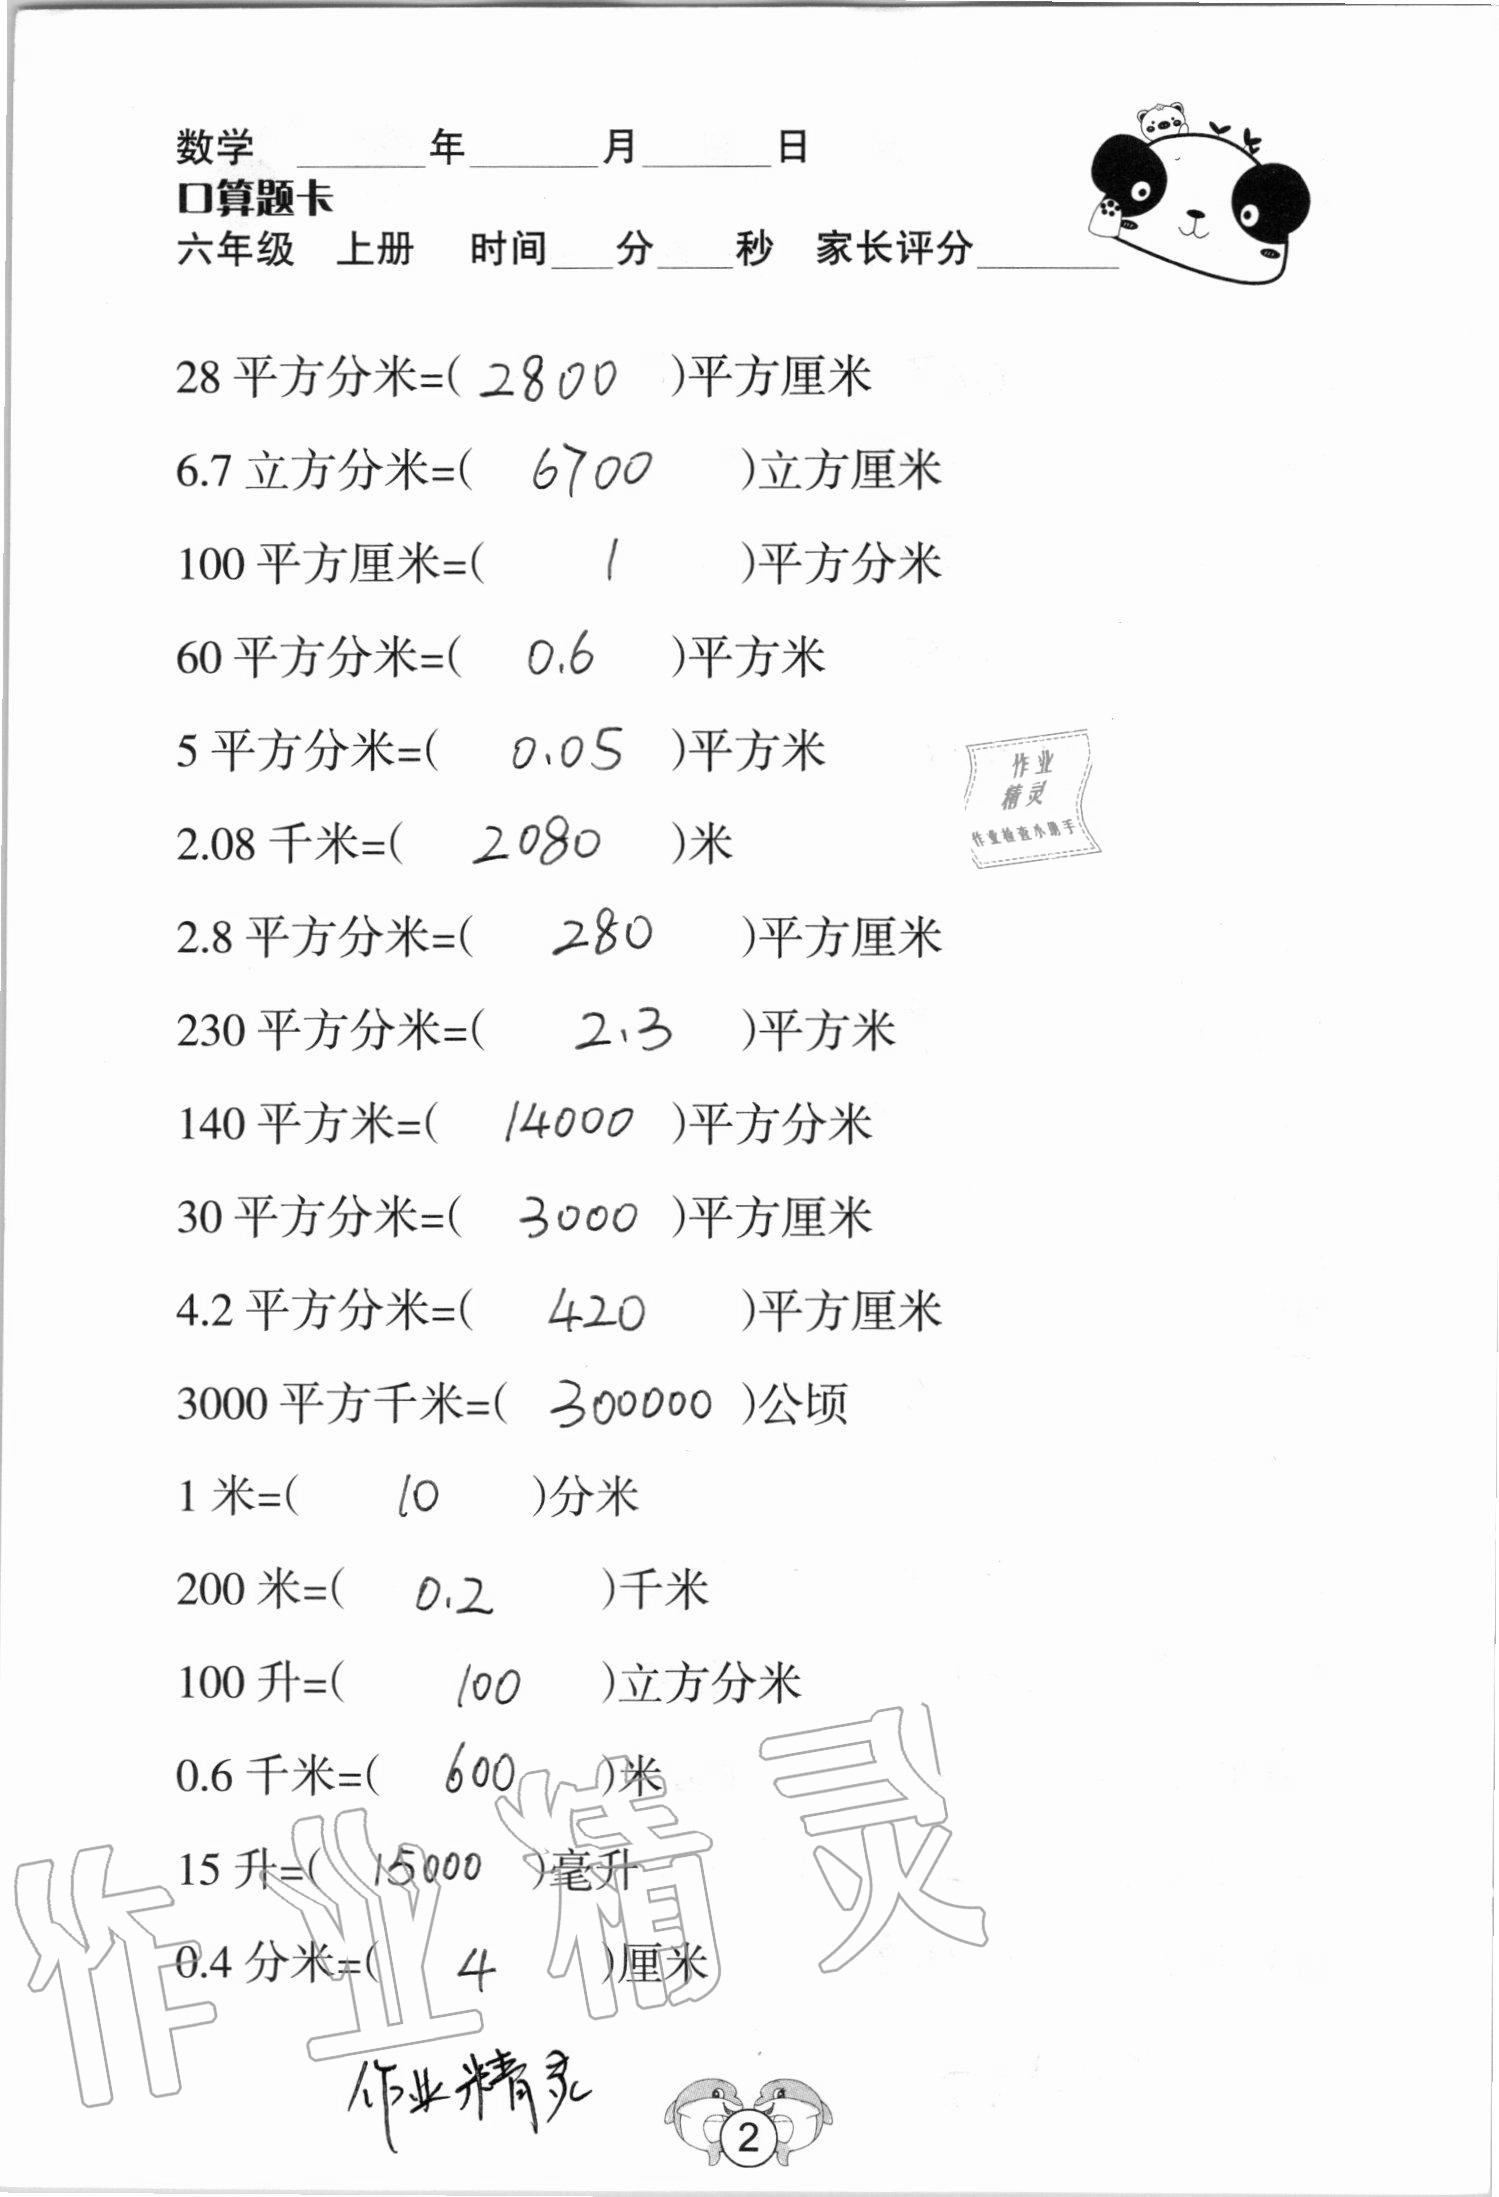 数学 ______年______月______日
口算题卡
六年级 上册 时间___分___秒 家长评分______
28 平方分米=( 2800 )平方厘米
6.7 立方分米=( 6700 )立方厘米
100 平方厘米=( 1 )平方分米
60 平方分米=( 0.6 )平方米
5 平方分米=( 0.05 )平方米
作业
精灵
作业检查小助手
2.08 千米=( 2080 )米
2.8 平方分米=( 280 )平方厘米
230 平方分米=( 2.3 )平方米
140 平方米=( 14000 )平方分米
30 平方分米=( 3000 )平方厘米
4.2 平方分米=( 420 )平方厘米
3000 平方千米=( 300000 )公顷
1 米=( 10 )分米
200 米=( 0.2 )千米
100 升=( 100 )立方分米
0.6 千米=( 600 )米
15 升=( 15000 )毫升
0.4 分米=( 4 )厘米
作业精灵
作业精灵
2